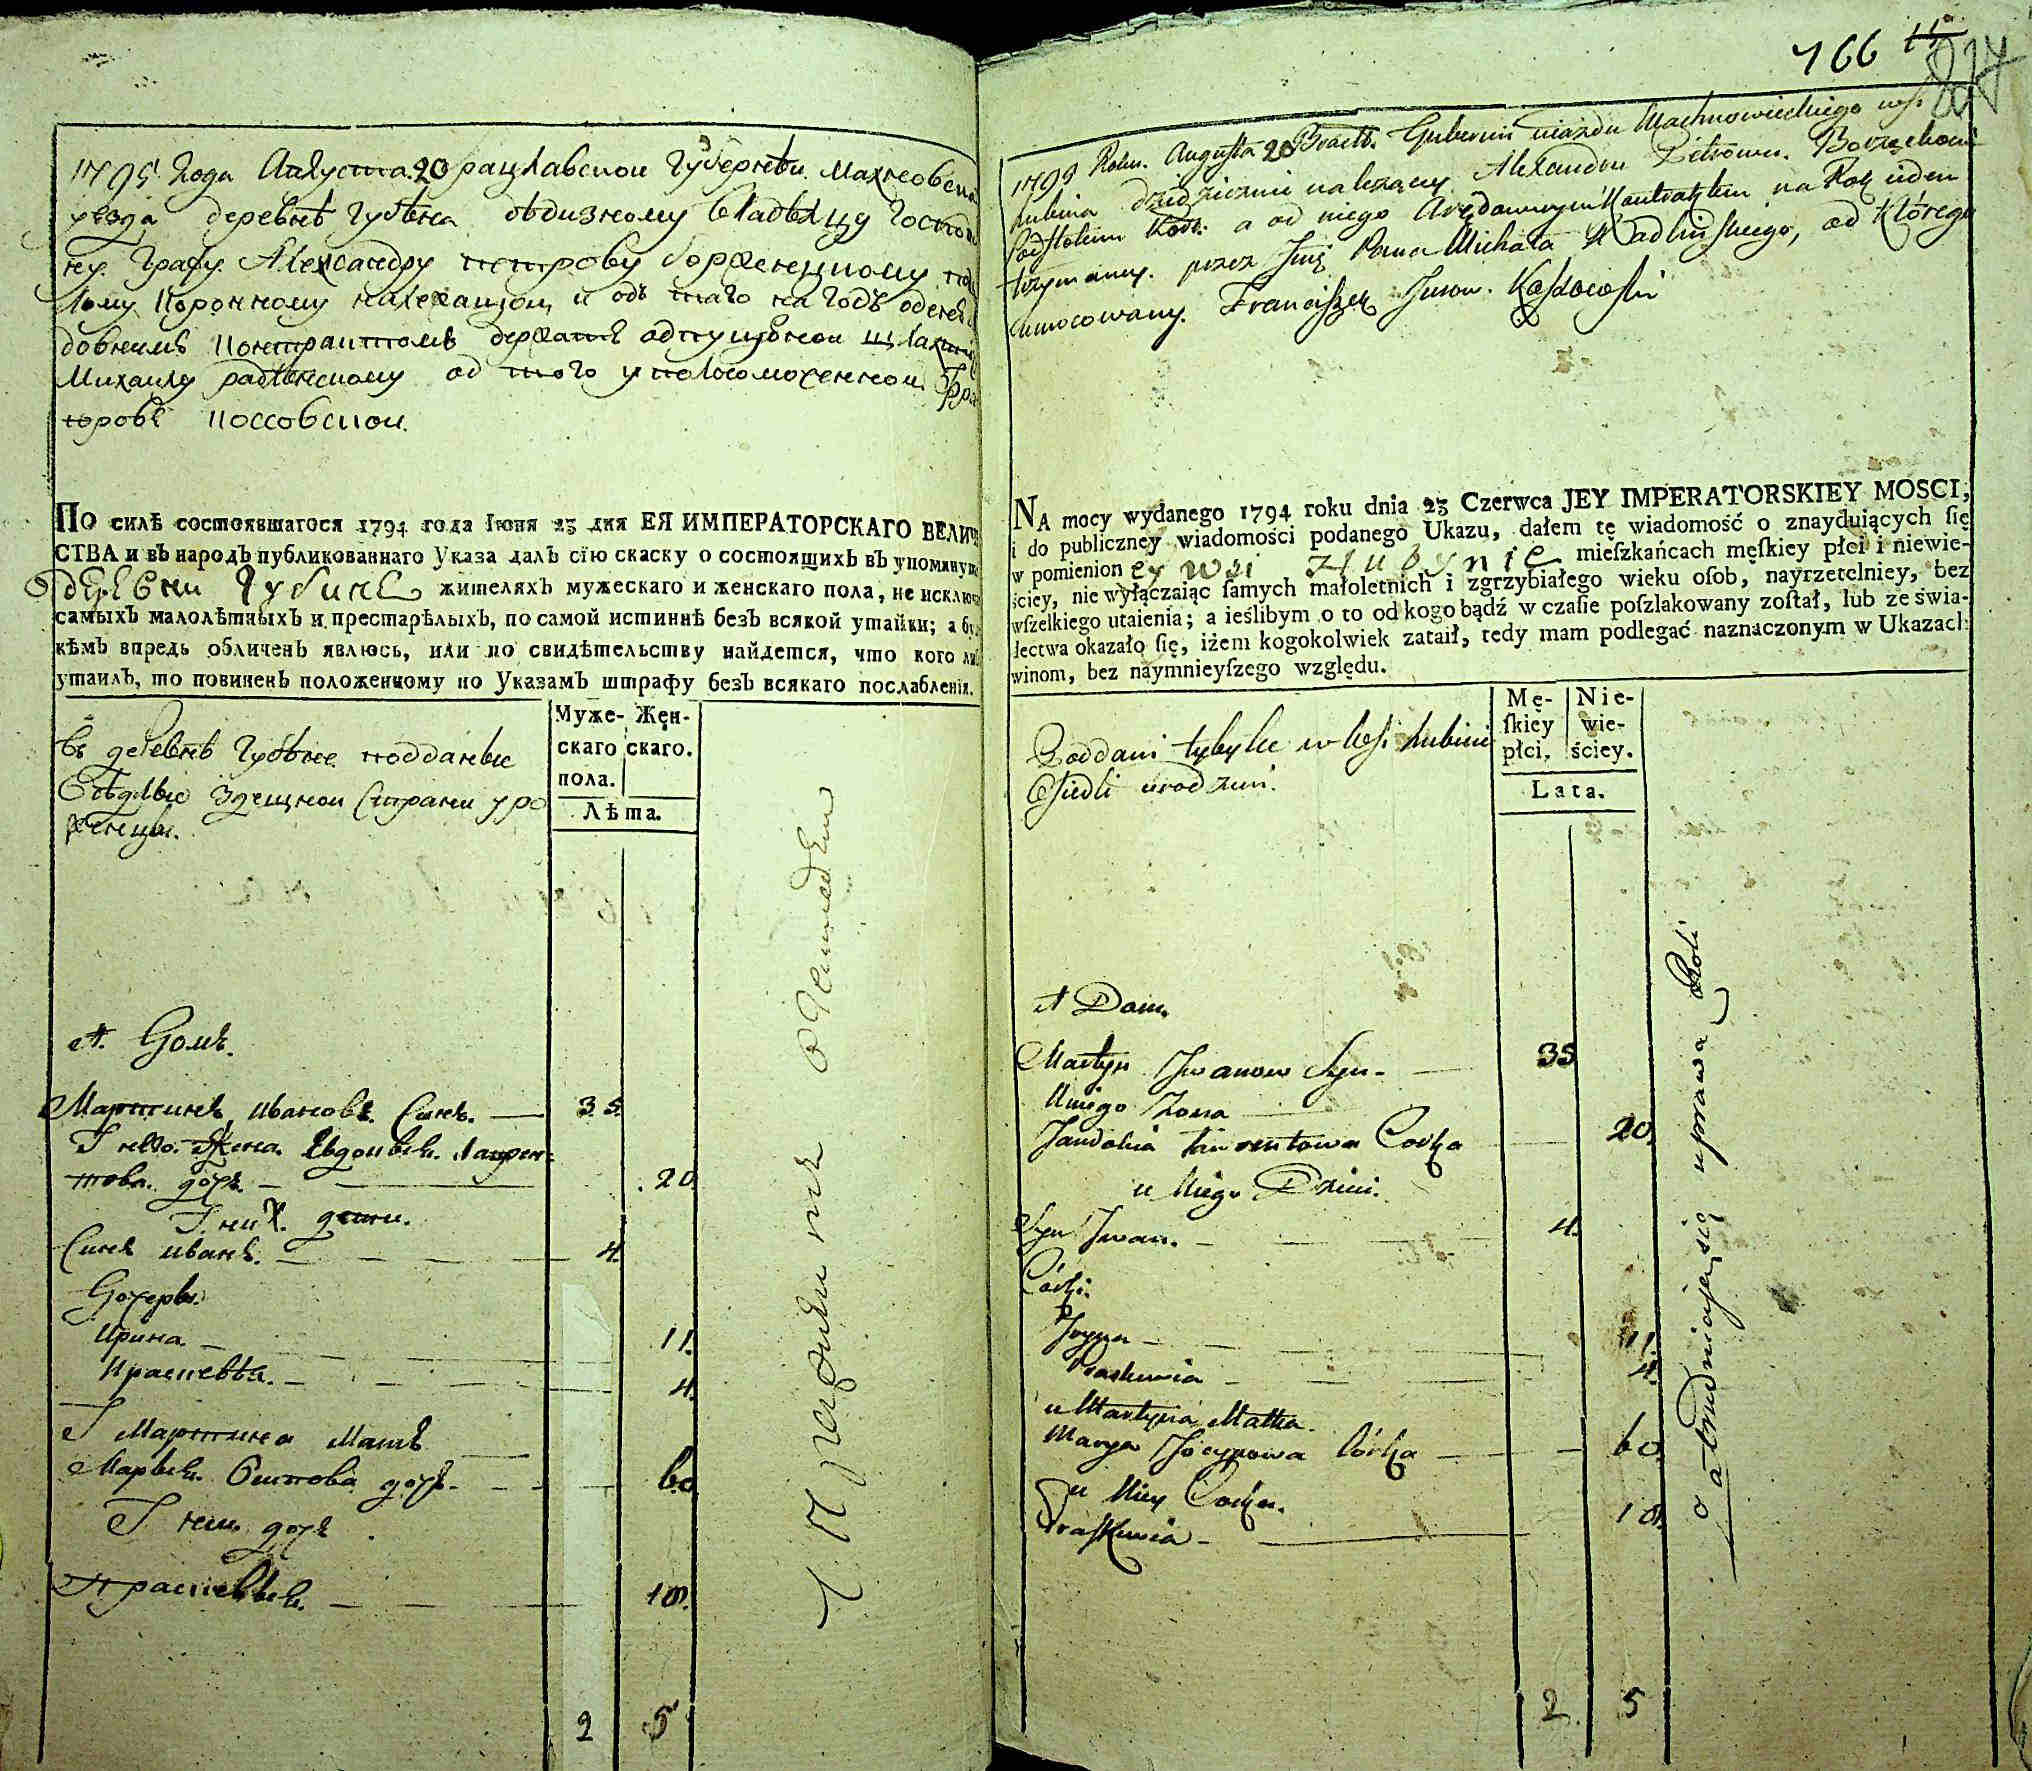 1795 года Августа 20 Брацлавской Губернѣи Махновска
уезда деревнѣ Губѣна отдизному владѣлцу Господи
ну Графу Александру петрову
лому Коронному належащой и одъ таго на годъ
довнимъ контрактомъ держатѣ одпущоной шляхти
Михаилу радлѣнскому од того уполномоченной
Коссовской
ПО силѣ состоявшагося 1794 года Іюня 23 дня ЕЯ ИМПЕРАТОРСКАГО ВЕЛИЧЕ
СТВА и въ народъ публикованнаго Указа далъ сїю скаску о состоящихъ въ упомянуто
деревни Губинѣ жителяхъ мужескаго и женскаго пола, не исключа
самыхъ малолѣтныхъ и престарѣлыхъ, по самой истиннѣ безъ всякой утайки; а бу
кѣмъ впредь обличенъ явлюсь, или по свидѣтельству найдется, что кого ли
утаилъ, то повиненъ положенному по Указамъ штрафу безъ всякаго послабленія.
Муже- Жен-
скаго скаго.
пола.
Лѣта.
въ деревнѣ Губѣне подданые
Оседлые здешной страни уро
женци.
1. Домъ.
Мартинъ ивановъ Синъ. — 35
У него жена Евдокѣя Лаврен-
това дочъ — 20
У них дети.
Синъ иванъ. — 4.
Дочеры.
Ирина — 11.
Праскевѣя. — 4.
У Мартина Матъ
Марѣя дочъ — 60
У неи дочъ
Праскевѣя. — 18.
2 5
166
1795 Roku Augusta 20 Bracł. Gubernii ujazdu Machnowieckiego wsi
hubina dziedzicznie należący Alexandru Pitrowu.
Podstolemu Kor: a od niego Arędownym Kontraktem na Rok
trzymany. przez Jmę Pana Michała Radlińskiego, od którego
umocowany. Franciszek Kossowski
NA mocy wydanego 1794 roku dnia 23 Czerwca JEY IMPERATORSKIEY MOSCI,
i do publiczney wiadomości podanego Ukazu, dałem tę wiadomość o znayduiących ſię
w pomienioney wsi Hubynie mieſzkańcach męſkiey płci i niewie-
ściey, nie wyłączaiąc ſamych małoletnich i zgrzybiałego wieku oſob, nayrzetelniey, bez
wſzelkiego utaienia; a ieślibym o to od kogo bądź w czaſie poſzlakowany zoſtał, lub ze świa-
dectwa okazało ſię, iżem kogokolwiek zataił, tedy mam podlegać naznaczonym w Ukazach
winom, bez naymnieyſzego względu.
Mę- Nie-
ſkiey wie-
płci, ściey.
Lata.
Poddani tybylce w wsi hubini
Osiedli urodzeni.
1 Dom.
Martyn Jwanow Syn — 35
U niego Żona
Jawdokia Córka — 20.
u Niego Dzieci.
Syn Jwan. — 4.
Córki.
Jryna — 11.
Praskewia — 4.
u Martyna Matka
Marya Córka — 60.
u Niey Corka.
Praskewia — 18.
zatrudniają się uprawą Roli
2. 5